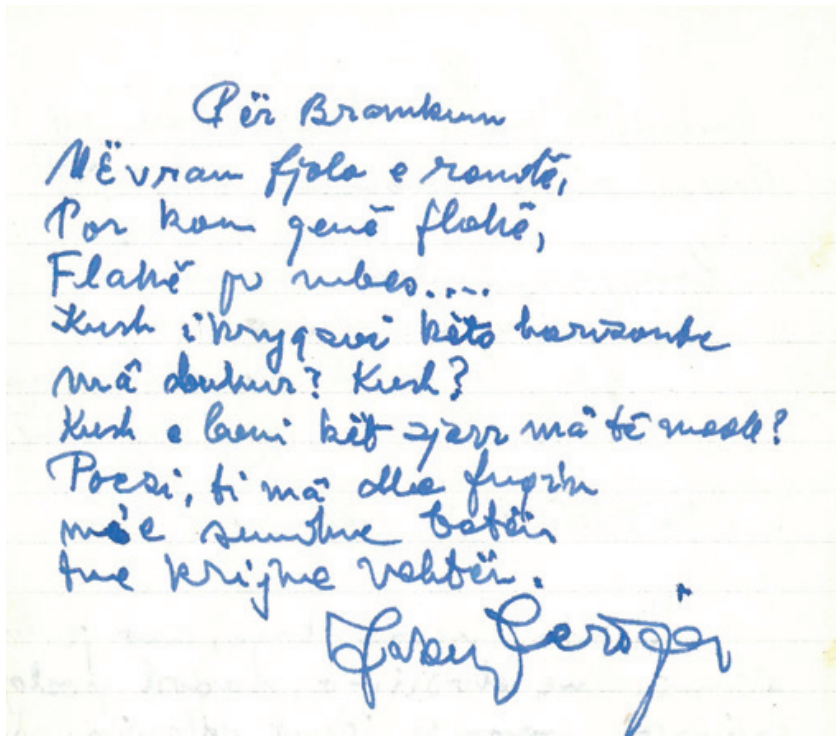 Për Bramkun
Më vrau fjala e randë,
Por kam qenë flakë,
Flakë po mbes....
Kush i kryqzoi këto horizonte
mâ? Kush?
Kush e bani kët zjarr mâ të madh?
Poezi, ti mâ dhe fuqin
me e sundue botën
tue krijue vehtën.